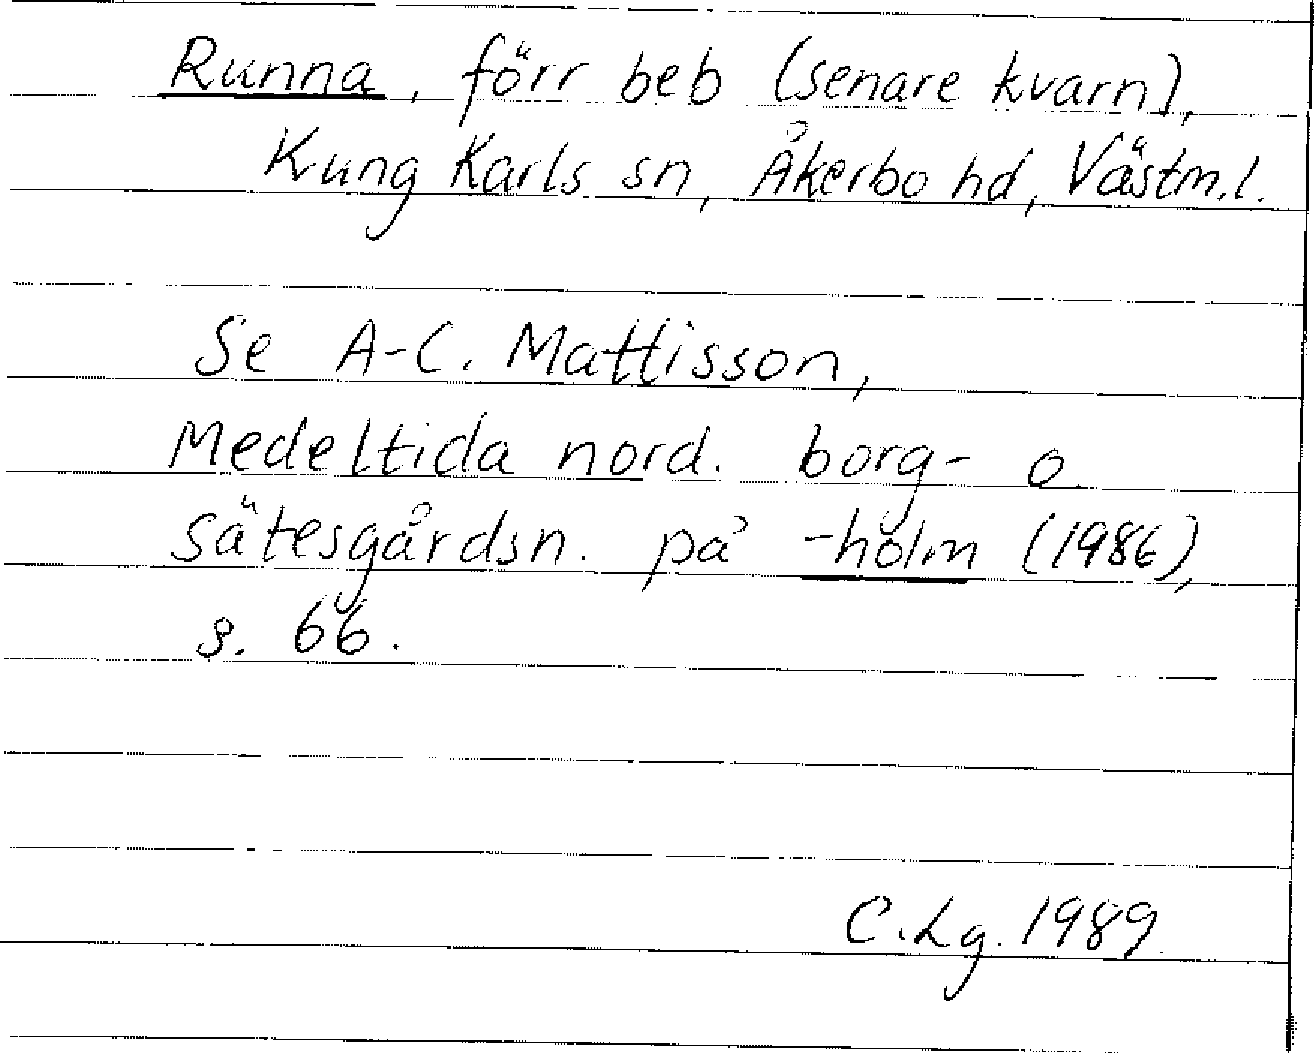 Runna, förr beb (senare kvarn),
Kung Karls sn, Åkerbo hd, Västm.l.
Se A-C. Mattisson,
Medeltida nord. borg- o
sätesgårdsn. på -holm (1986),
s. 66.
C.Lg. 1989